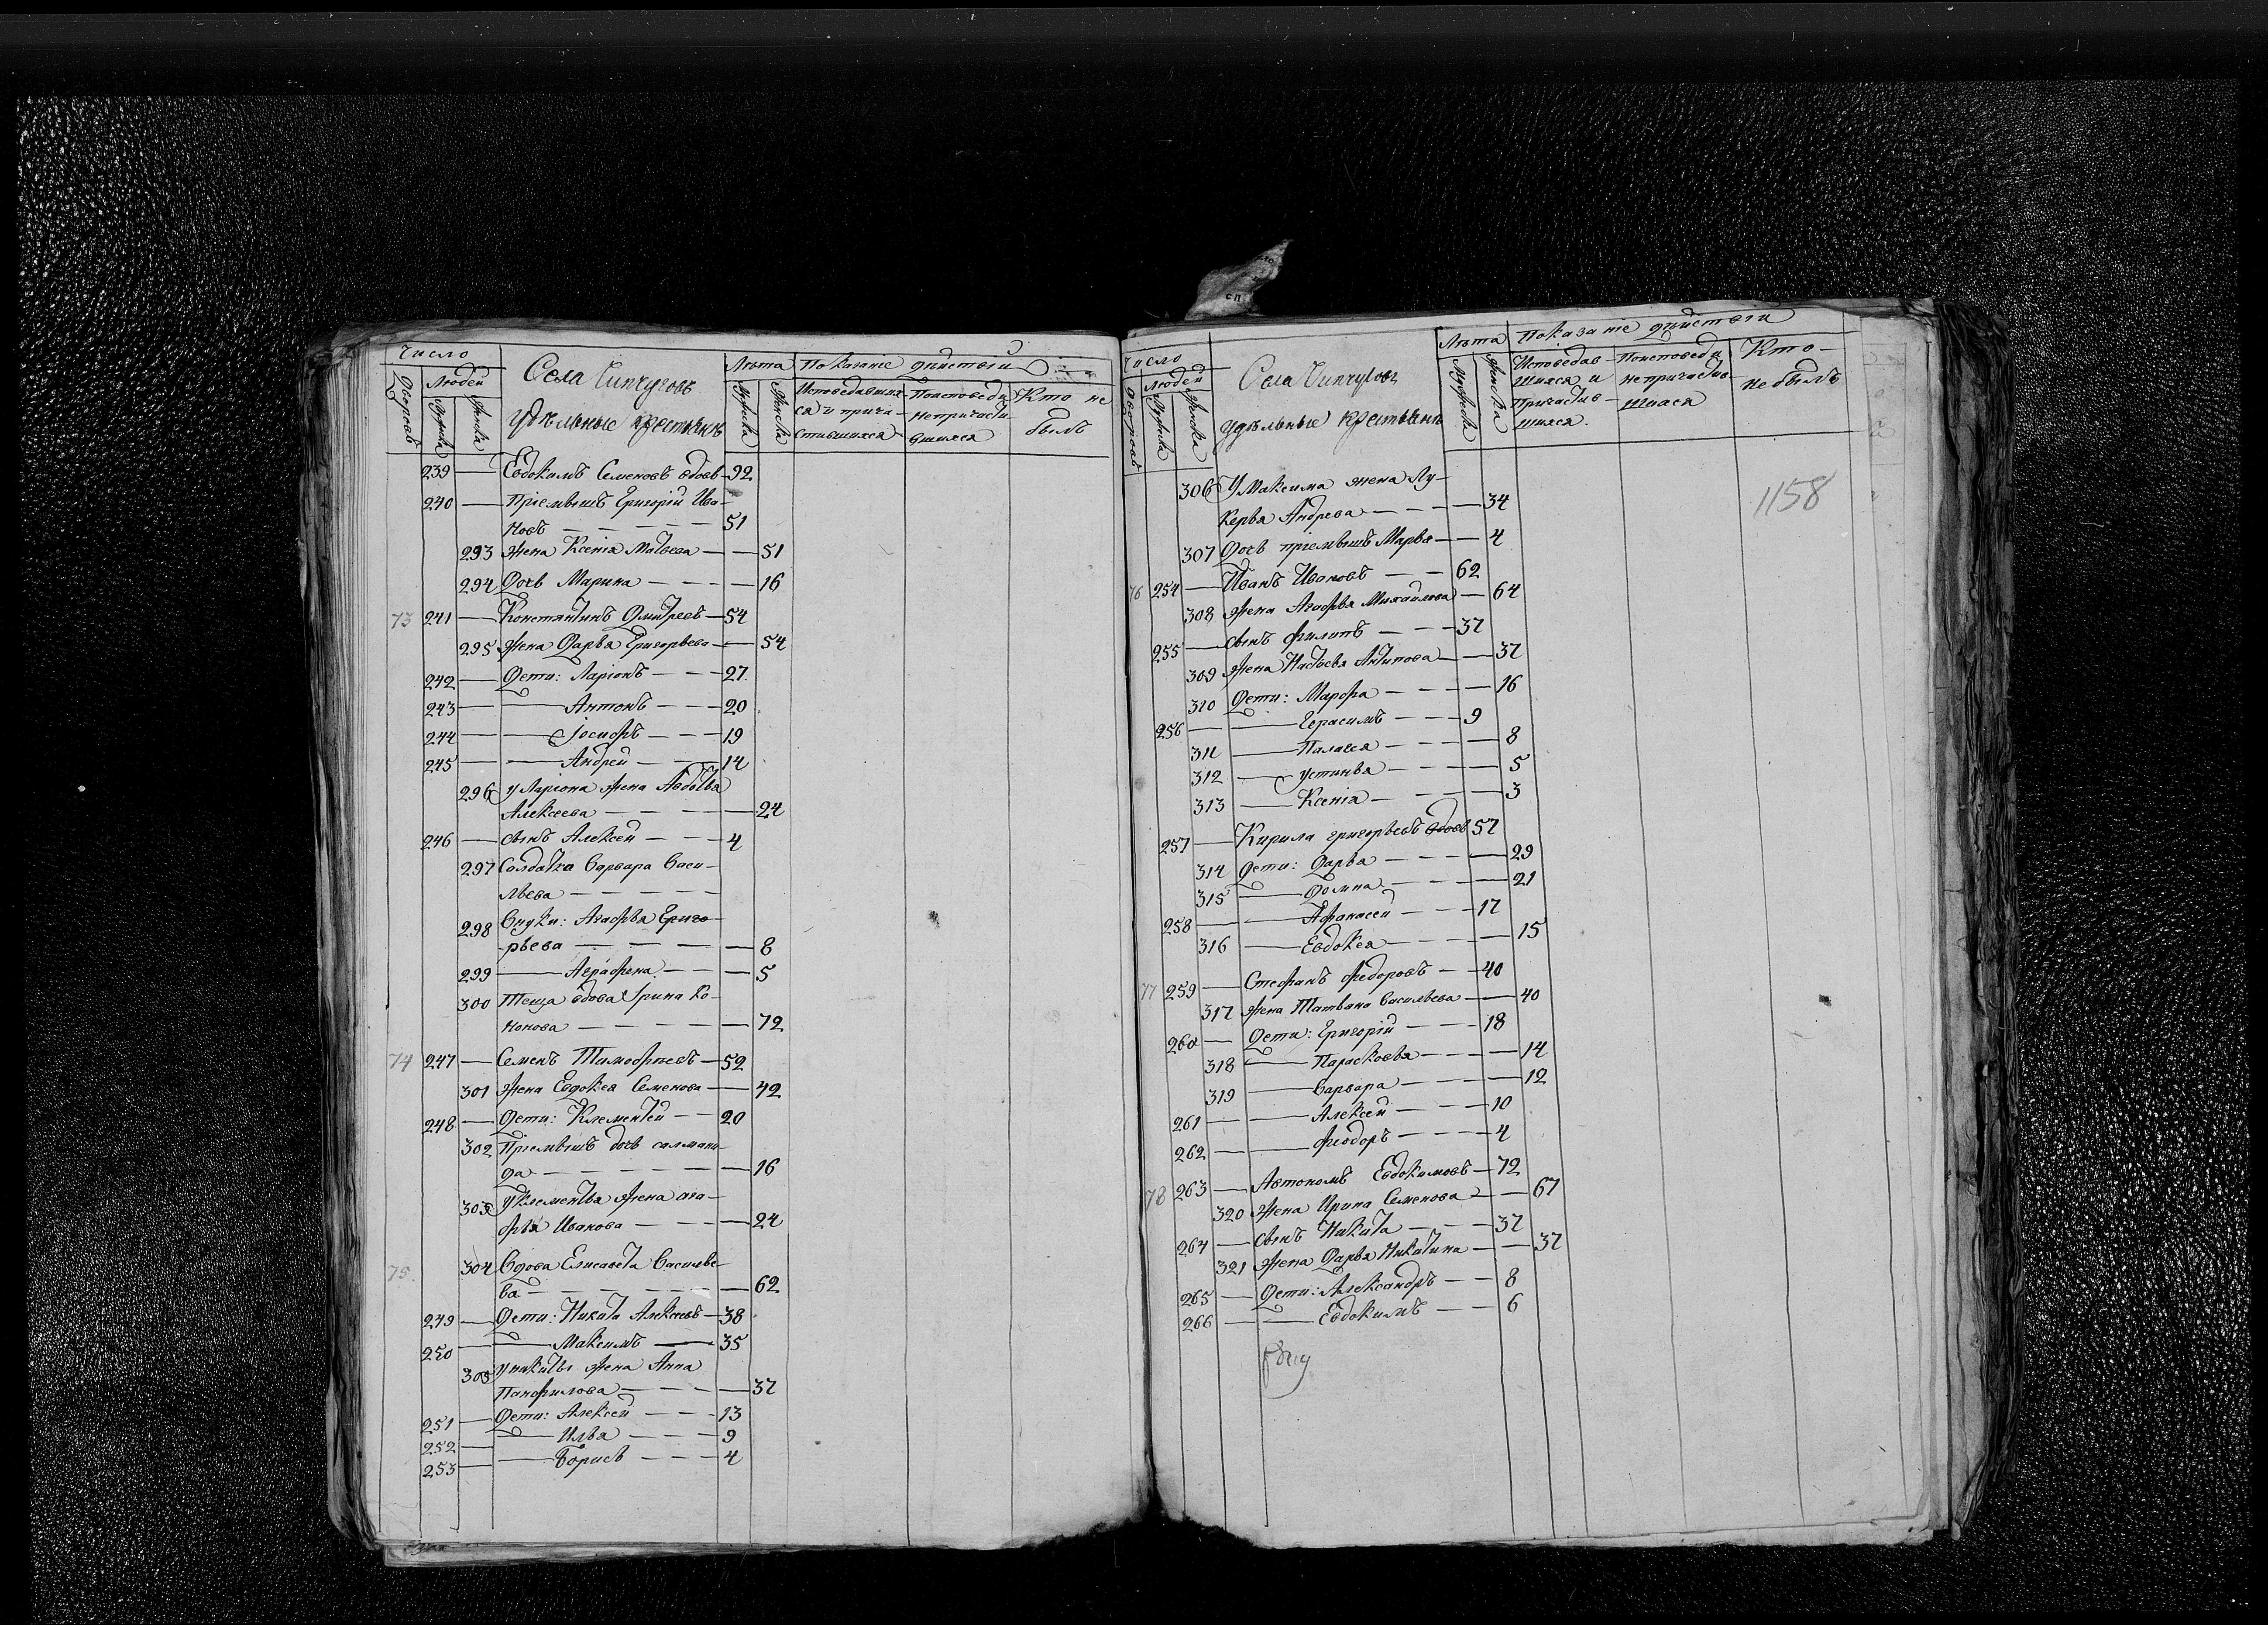 Число
Людей
Дворовъ
Мужеска
Женска
Села Чипчуговъ
удѣльные крестьянѣ
Лѣта
Мужеска
Женска
Показанїе дѣйствїй
Исповѣдавших
ся и прича-
стившихся
По исповеди
не причасти
вшихся
Кто не
былъ
239 — Евдокимъ Семеновъ вдовъ — 92
240 — Прїемышъ Григорїй Ива-
новъ — 51
293 Жена Ксенїя Матвева — 51
294 Дочь Марина — 16
73 241 — Константинъ Дмитреевъ — 54
295 Жена Дарья Григорьева — 54
242 — Дети: Ларїонъ — 27
243 — Антонъ — 20
244 — Іосифъ — 19
245 — Андрей — 14
296 у Ларїона жена Авдотья
Алексеева — 24
246 — сынъ Алексей — 4
297 Солдатка Варвара Васи-
льева —
298 Внуки: Агафья Григо-
рьева — 8
299 — Аграфена — 5
300 Теща вдова Ірина Ко-
нонова — 72
74 247 — Семенъ Тимофѣевъ — 52
301 Жена Евдокея Семенова — 42
248 — Дети: Клементей — 20
302 Прїемышъ дочь салмани-
да — 16
303 У Клементья жена ага-
фья Иванова — 24
75. 304 Вдова Елисавета Василье-
ва — 62
249 — Дети: Никита Алексеевъ — 38
250 — Максимъ — 35
305 у никиты жена Анна
Панфилова — 37
251 — Дети: Алексей — 13
252 — Илья — 9
253 — Борисъ — 4
Число
Людей
Дворовъ
Мужеска
Женска
Села Чипчуговъ
удѣльные крестьянѣ
Лѣта
Мужеска
Женска
Показанїе дѣйствїй
Исповедав-
шихся и
Причастив-
шихся.
По исповеди
не причастив-
шихся
Кто-
не былъ
1158
306 У Максима жена Лу-
керья Андреева — 34
307 Дочь прїемышъ Марья — 4
76 254 — Иванъ Ивановъ — 62
308 Жена Агафья Михайлова — 64
255 — сынъ филипъ — 37
309 Жена Настасья Антипова — 37
310 Дети: Марфа — 16
256 — Герасимъ — 9
311 — Палагея — 8
312 — Устинья — 5
313 — Ксенїя — 3
257 — Кирила григорьевъ вдовъ 57
314 Дети: Дарья — 29
315 — Домна — 21
258 — Афанасей — 17
316 — Евдокея — 15
77 259 — Стефанъ федоровъ — 40
317 Жена Татьяна Васильева — 40
260 — Дети: Григорїй — 18
318 — Парасковья — 14
319 — Варвара — 12
261 — Алексей — 10
262 — феодоръ — 4
78 263 — Автономъ Евдокимовъ — 72
320 Жена Ирина Семенова — 67
264 — сынъ Никита — 37
321 Жена Дарья Никитина — 37
265 — Дети: Александръ — 8
266 — Евдокимъ — 6